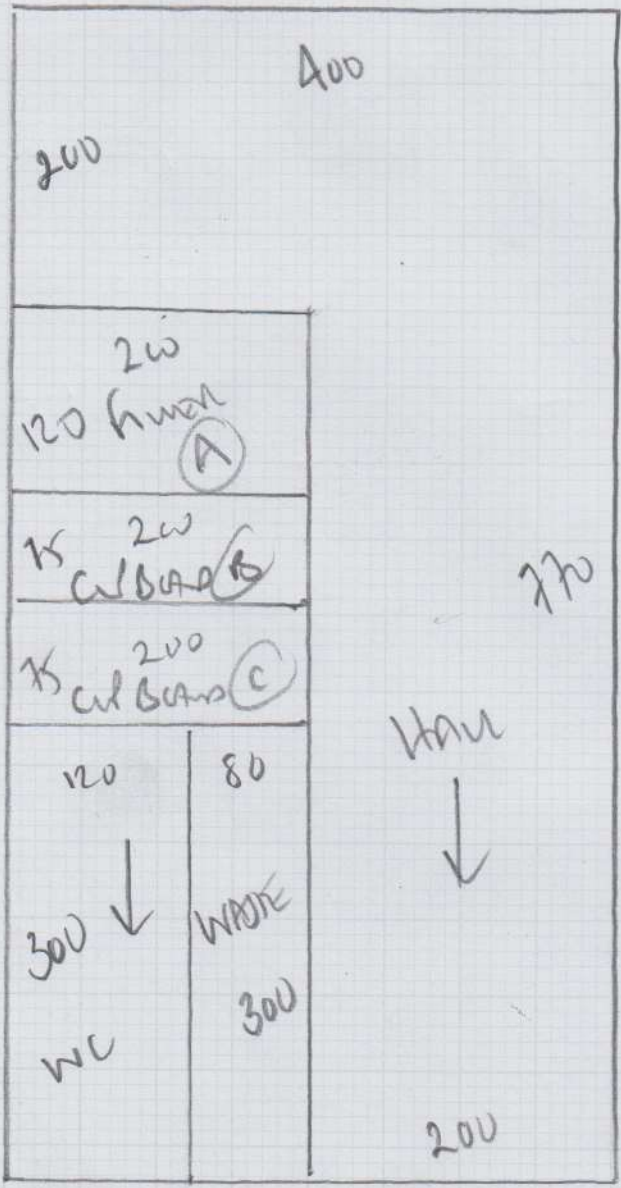 400
200
200
120
A
75 200
CUPBOARD B
75 200
CUPBOARD C
770
HALL
120 80
300
WASTE
300
WC
200